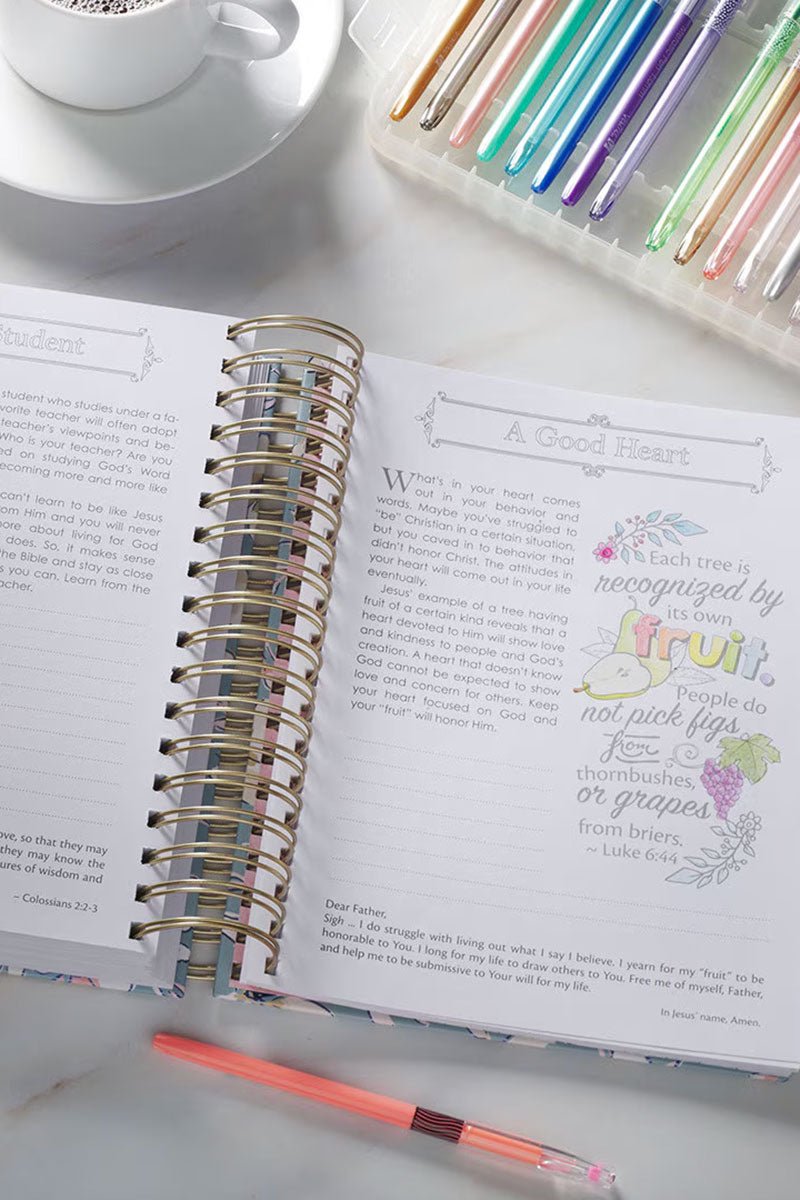 Student
student who studies under a fa-
vorite teacher will often adopt
teacher's viewpoints and be-
Who is your teacher? Are you
ed on studying God's Word
ecoming more and more like
can't learn to be like Jesus
om Him and you will never
ore about living for God
does. So, it makes sense
the Bible and stay as close
s you can. Learn from the
acher.
ove, so that they may
they may know the
ures of wisdom and
~ Colossians 2:2-3
A Good Heart
What's in your heart comes
out in your behavior and
words. Maybe you've struggled to
"be" Christian in a certain situation,
but you caved in to behavior that
didn't honor Christ. The attitudes in
your heart will come out in your life
eventually.
Jesus' example of a tree having
fruit of a certain kind reveals that a
heart devoted to Him will show love
and kindness to people and God's
creation. A heart that doesn't know
God cannot be expected to show
love and concern for others. Keep
your heart focused on God and
your "fruit" will honor Him.
Each tree is
recognized by
its own
fruit.
People do
not pick figs
from
thornbushes,
or grapes
from briers.
~ Luke 6:44
Dear Father,
Sigh ... I do struggle with living out what I say I believe. I yearn for my "fruit" to be
honorable to You. I long for my life to draw others to You. Free me of myself, Father,
and help me to be submissive to Your will for my life.
In Jesus' name, Amen.